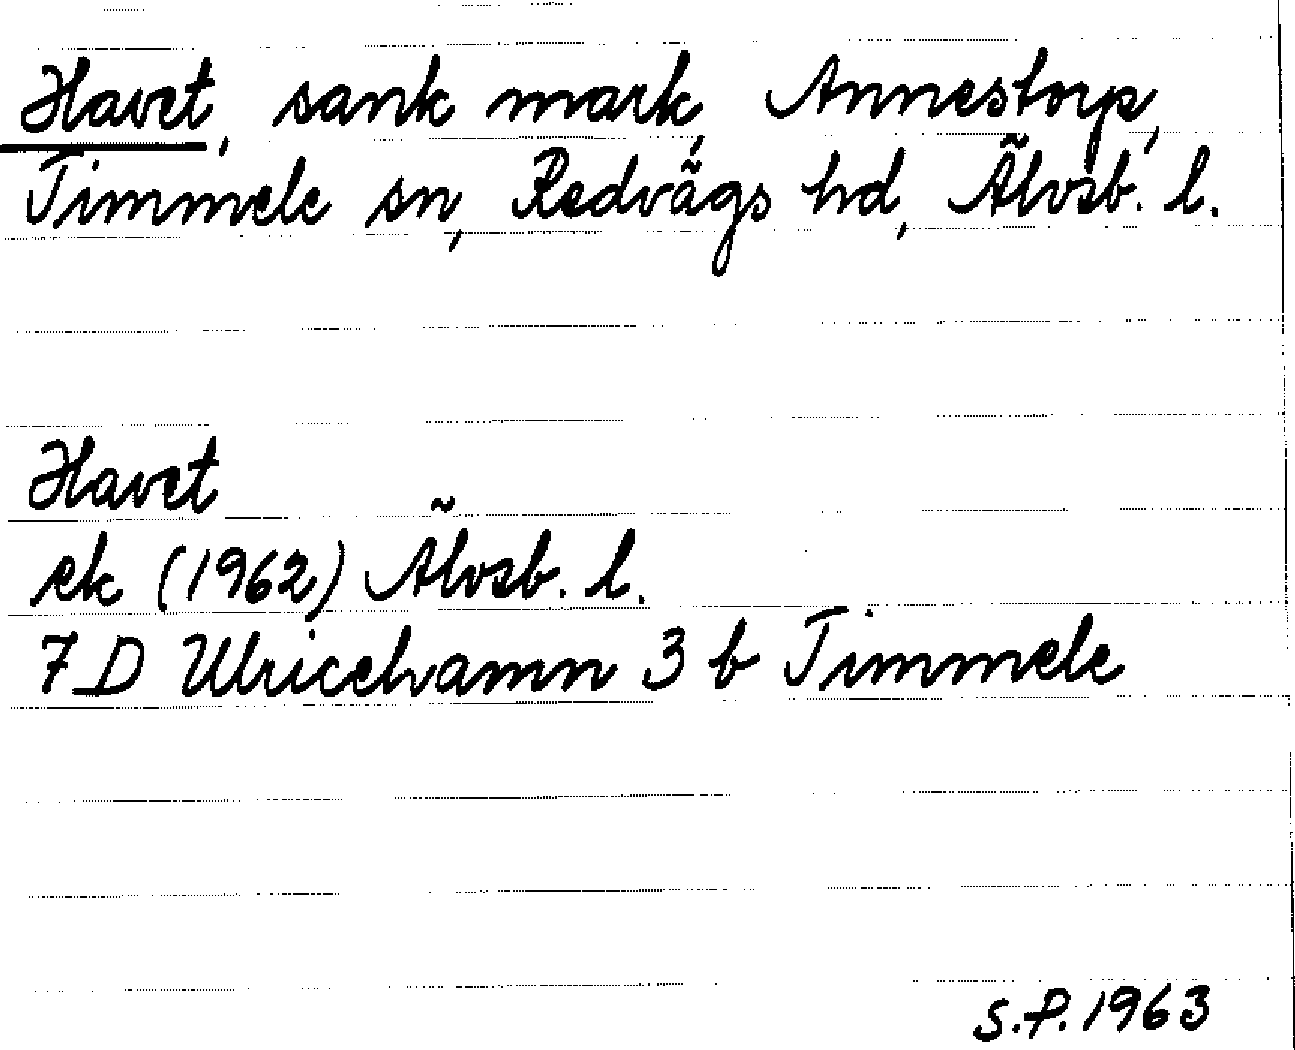 Havet, sank mark, Annestorp,
Timmele sn, Redvägs hd, Älvsb. l.
Havet
ek (1962) Älvsb. l.
7 D Ulricehamn 3 b Timmele
S.P. 1963